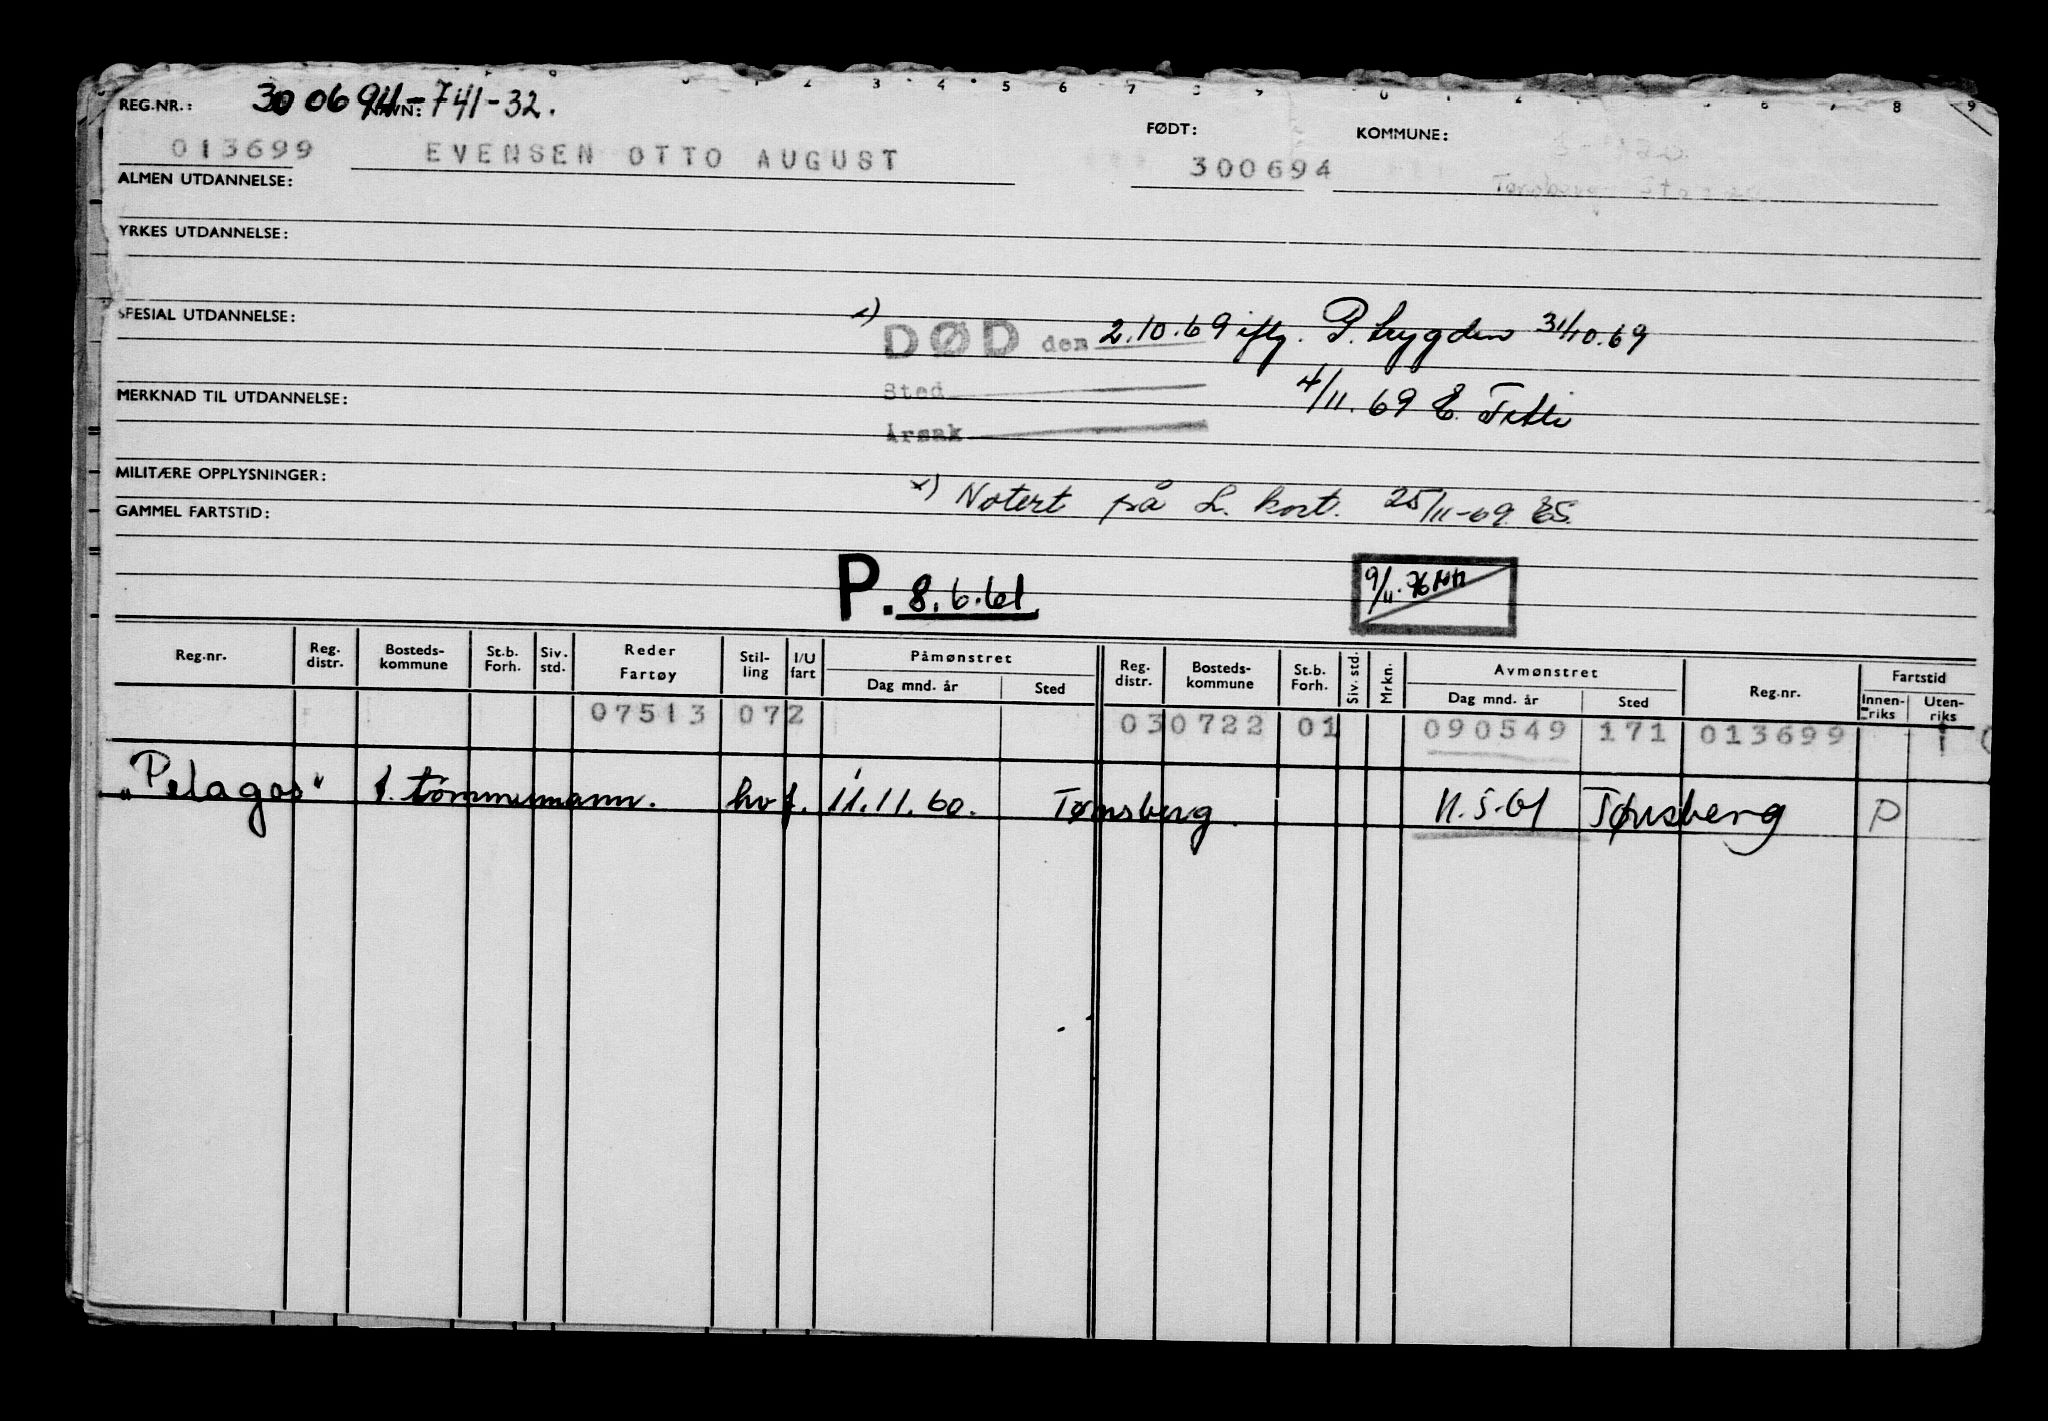 0 1 2 3 4 5 6 7 8 9 0 1 2 6 7 8 9
REG.NR.: 300694-741-32.
FØDT: KOMMUNE:
013699 EVENSEN OTTO AUGUST 300694
ALMEN UTDANNELSE:
YRKES UTDANNELSE:
SPESIAL UTDANNELSE:
x) DØD den 2.10.69 iflg. P. trygden 31/10.69
Sted
4/11.69 E.
MERKNAD TIL UTDANNELSE:
Årsak
MILITÆRE OPPLYSNINGER:
x) Notert på L. kort. 25/11-69. ES.
GAMMEL FARTSTID:
P. 8.6.61 9/11.76
Reg.nr. Reg. distr. Bosteds-kommune St.b. Forh. Siv. std. Reder Fartøy Stil-ling I/U fart Påmønstret Dag mnd. år Sted Reg. distr. Bosteds-kommune St.b. Forh. Siv. std. Mrkn. Avmønstret Dag mnd. år Sted Reg.nr. Fartstid Innen-riks Uten-riks
07513 072 030722 01 090549 171 013699 1
"Pelagos" 1. tømmermann. hvf. 11.11.60. Tønsberg. 11.5.61 Tønsberg P